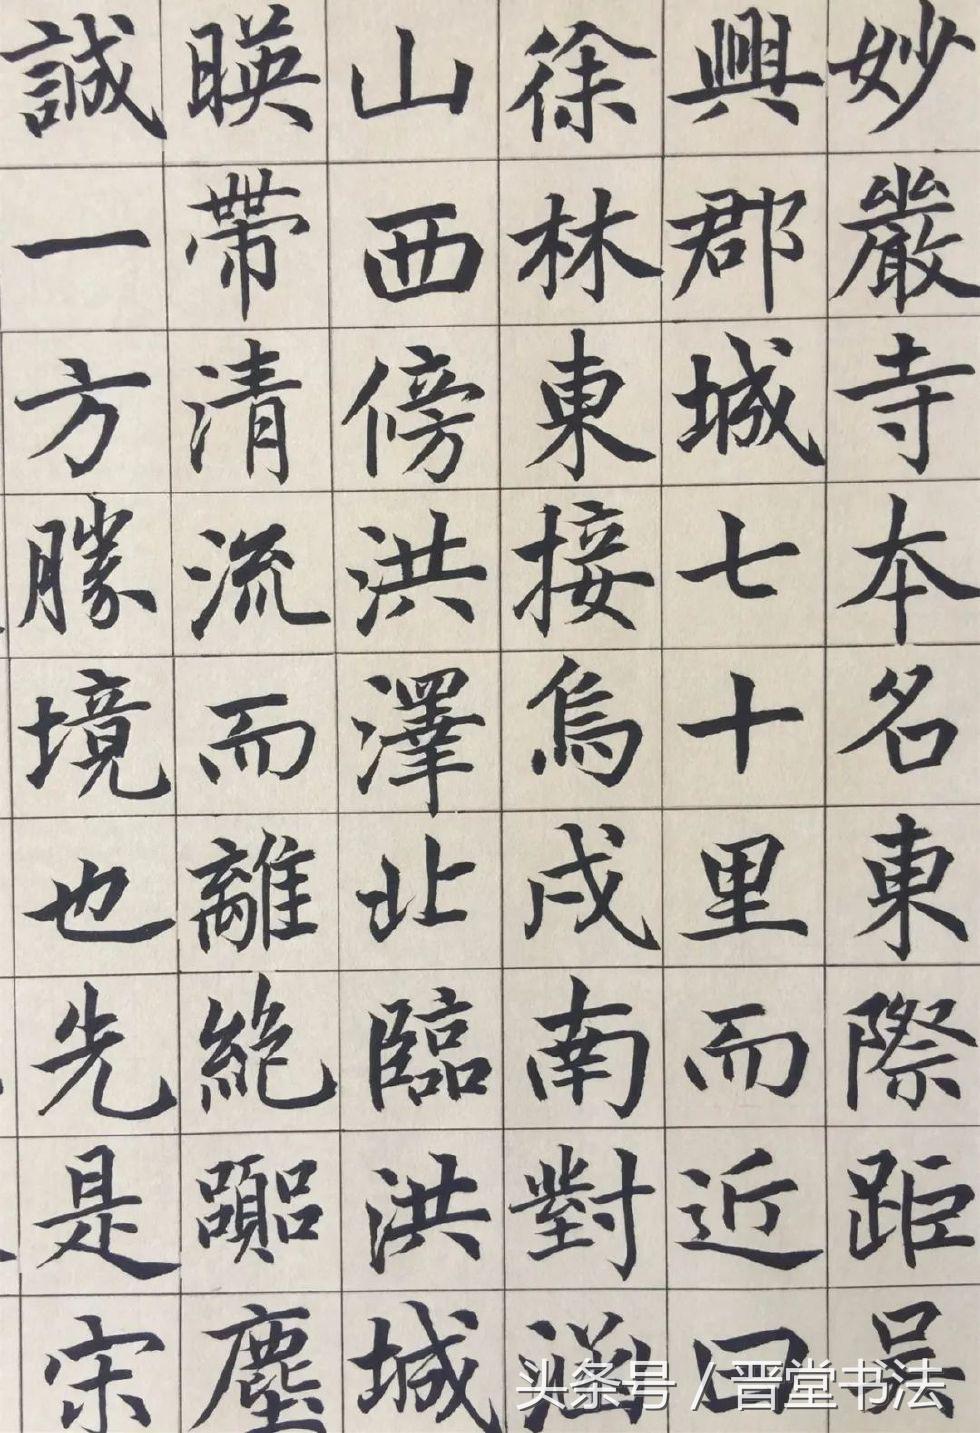 妙嚴寺本名東際距吴
興郡城七十里而近曰
徐林東接烏戌南對涵
山西傍洪澤北臨洪城
暎帶清流而離絶囂塵
誠一方勝境也先是宋
头条号 / 晋堂书法